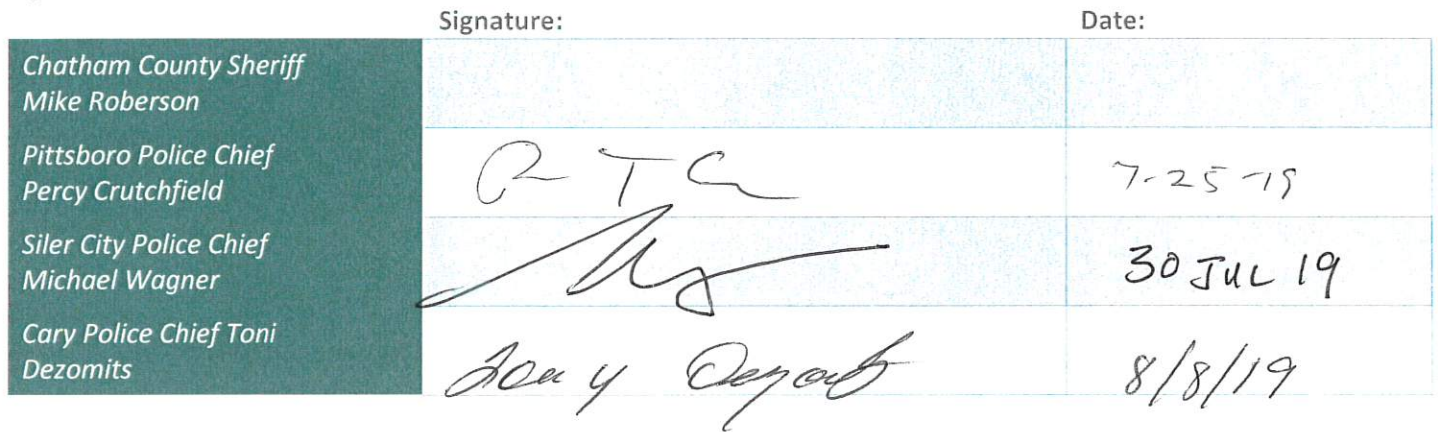 Signature: Date:
Chatham County Sheriff
Mike Roberson
Pittsboro Police Chief
Percy Crutchfield
7-25-19
Siler City Police Chief
Michael Wagner
30 JUL 19
Cary Police Chief Toni
Dezomits
8/8/19